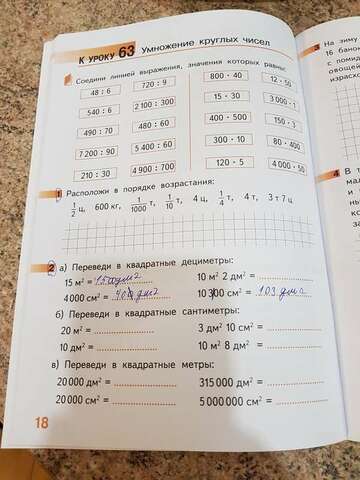 К УРОКУ 63 Умножение круглых чисел
Соедини линией выражения, значения которых равны:
48 : 6 720 : 9 800 · 40 12 · 50
540 : 6 2 100 : 300 15 · 30 3 000 · 1
490 : 70 480 : 60 400 · 500 150 · 3
7 200 : 90 5 400 : 60 300 · 10 80 · 400
210 : 30 4 900 : 700 120 · 5 4 000 · 50
1 Расположи в порядке возрастания:
1/2 ц, 600 кг, 1/1000 т, 1/10 т, 4 ц, 1/4 т, 4 т, 3 т 7 ц
2 а) Переведи в квадратные дециметры:
15 м² = 1500 дм² 10 м² 2 дм² =
4 000 см² = дм² 10 300 см² = 103 дм²
б) Переведи в квадратные сантиметры:
20 м² = 3 дм² 10 см² =
10 дм² = 10 м² 8 дм² =
в) Переведи в квадратные метры:
20 000 дм² = 315 000 дм² =
20 000 см² = 5 000 000 см² =
18
3 На зиму
16 банок
с помид
овощей
израсхо
4 В т